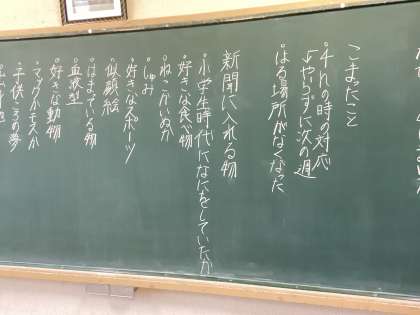 こまったこと
・4hの時の対応
→やらずに次の週
・はる場所がなくなった
新聞に入れる物
・小学生時代になにをしていたか
・好きな食べ物
・ねこかいぬか
・しゅみ
・好きなスポーツ
・似顔絵
・はまっている物
・血液型
・好きな動物
・マックかモスか
・子供ころの夢